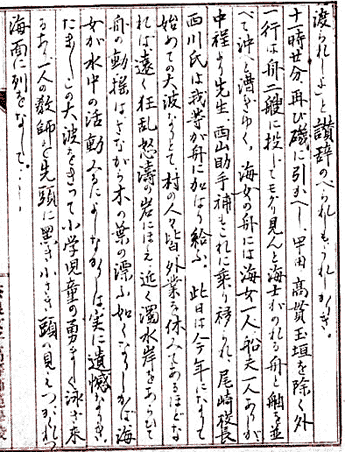 渡られしよと讃辞のべられしもうれしかりき。
十一時廿分再び磯に引かへし、甲田高貫玉垣を除く外
一行は舟二艘に投じてモグリ見んと海士がのれる舟と舳を並
べて沖へと漕ぎゆく。海女の舟には海女一人船夫一人ありしが
中程より先生、西山助手補もこれに乗り移られ、尾崎校長
西川氏は我等が舟に加はり給ふ。此日は今年になりて
始めての大波なりとて村の人々皆外業を休みてあるほどな
れば遠く狂乱怒濤の岩にほえ近く濁水岸をあらひて
舟の動揺はさながら木の葉の漂ふ如くなりしかば海
女が水中の活動みるによしなかりしは実に遺憾なりき。
たましこの大波をきつて小学児童の勇ましく泳ぎ来
るあり、一人の教師を先頭に黒き小さき頭の見えつかくれつ
海面に列をなして、